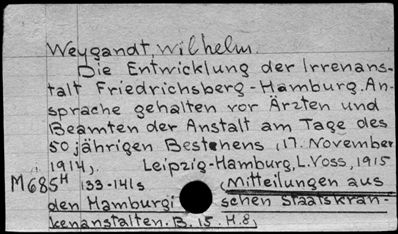 Weygandt, Wilhelm.
Die Entwicklung der Irrenans-
talt Friedrichsberg-Hamburg. An-
sprache gehalten vor Ärzten und
Beamten der Anstalt am Tage des
50 jährigen Bestehens (17. November
1914). Leipzig-Hamburg, L. Voss, 1915
M685H 133-141s (Mitteilungen aus
den Hamburgi schen Staatskran-
kenanstalten. B. 15. H. 8)